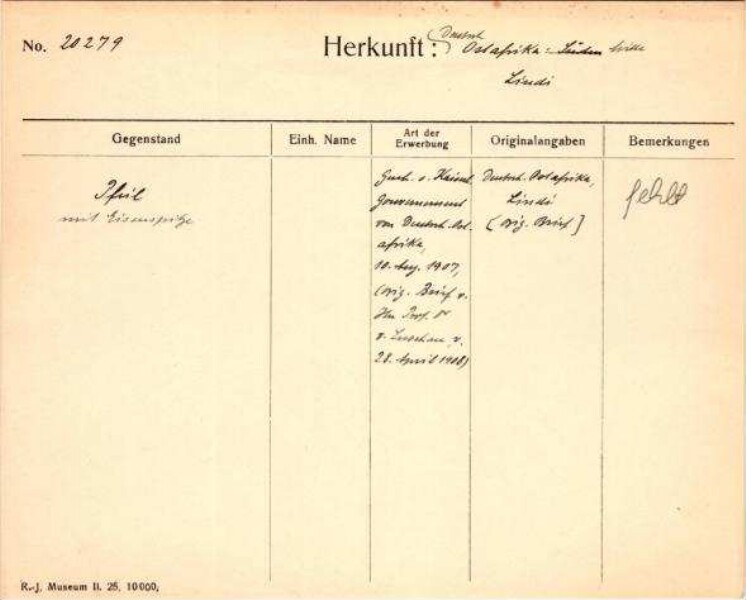 No. 20279
Herkunft: Deutsch Ostafrika: Süden
Lindi
Gegenstand
Einh. Name
Art der Erwerbung
Originalangaben
Bemerkungen
Pfeil
mit Eisenspitze
Gesch. v. Kaiserl.
Gouvernement
von Deutsch-Ost-
afrika,
10. Aug. 1907,
(orig. Brief v.
Hrn Prof. Dr
v. Luschan, v.
28. April 1908)
Deutsch-Ostafrika,
Lindi
(orig. Brief]
fehlt
R.-J. Museum II. 25, 10000,